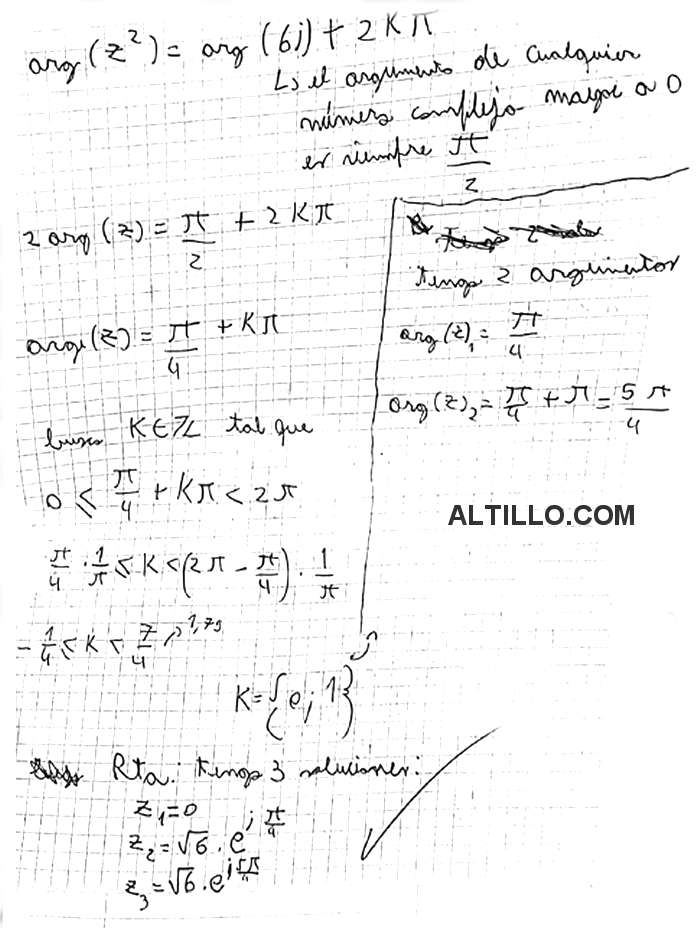 arg(z²) = arg(6j) + 2Kπ
↳ el argumento de cualquier
número complejo mayor a 0
es siempre π/2
2 arg(z) = π/2 + 2Kπ
arg(z) = π/4 + Kπ
busco K∈ℤ tal que
0 ≤ π/4 + Kπ < 2π
π/4 · 1/π ≤ K < (2π - π/4) · 1/π
-1/4 ≤ K < 7/4 → 1,75
K = {0; 1}
tengo 2 argumentos
arg(z)₁ = π/4
arg(z)₂ = π/4 + π = 5π/4
ALTILLO.COM
Rta: tengo 3 soluciones:
z₁ = 0
z₂ = √6 · e^(j π/4)
z₃ = √6 · e^(j 5π/4)